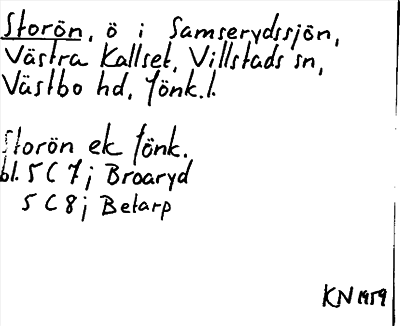 Storön, ö i Samserydssjön,
Västra Kallset, Villstads sn,
Västbo hd, Jönk.l.
Storön ek Jönk.
bl. 5 C 7 j Broaryd
5 C 8 j Betarp
KN 1959